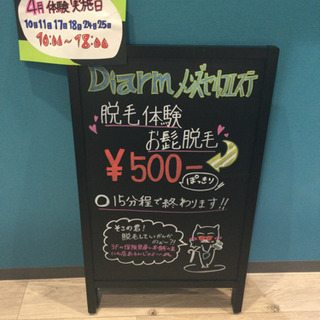 4月体験実施日
10日11日17日18日24日25日
10:00～18:00
Diarm メンズセルフエステ
脱毛体験
お髭脱毛
¥500-
ぽっきり
○15分程で終わります!!
そこの君!
脱毛していかんか